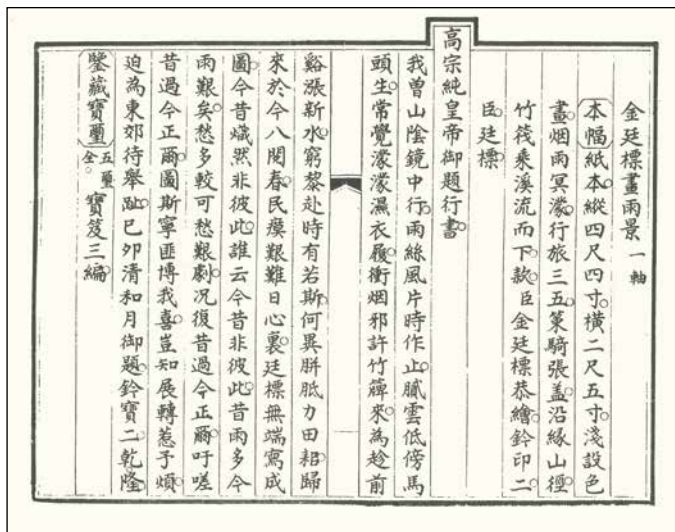 金廷標畫雨景一軸
本幅紙本縱四尺四寸橫二尺五寸淺設色
畫烟雨冥濛行旅三五策騎張盖沿緣山徑
竹筏乘溪流而下款臣金廷標恭繪鈐印二
臣廷標
高宗純皇帝御題行書
我曾山陰鏡中行雨絲風片時作止膩雲低傍馬
頭生常覺濛濛濕衣履衝烟邪許竹簰來為趁前
谿漲新水窮黎赴時有若斯何異胼胝力田耜歸
來於今八閱春民瘼艱難日心裏廷標無端寫成
圖今昔熾然非彼此誰云今昔非彼此昔雨多今
雨艱矣愁多較可愁艱劇况復昔過今正爾吁嗟
昔過今正爾圖斯寧匪博我喜豈知展轉惹予煩
迫為東郊待舉趾己卯清和月御題鈐寶二乾隆
鑒藏寶璽五璽全寶笈三編